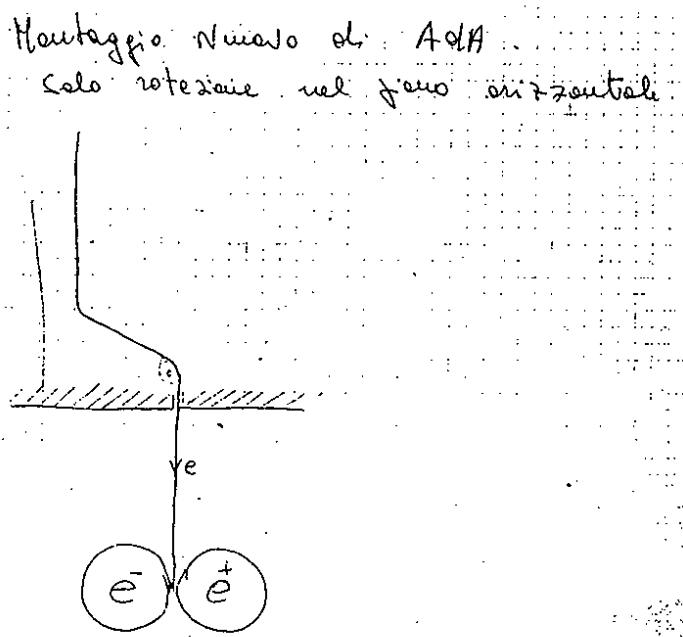 Montaggio Nuovo di AdA.
Solo rotazione nel piano orizzontale
e
e⁻ e⁺